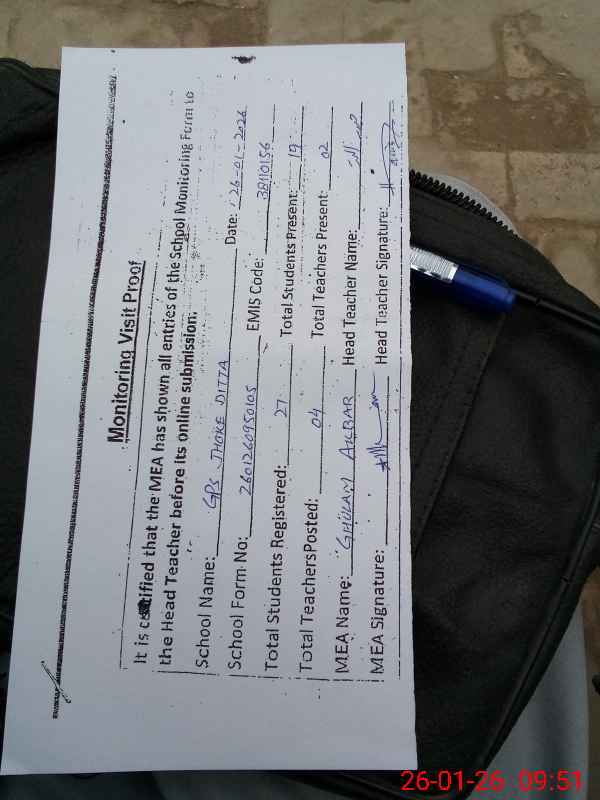 Monitoring Visit Proof
It is certified that the MEA has shown all entries of the School Monitoring Form to
the Head Teacher before its online submission.
School Name: GPS JHOKE DITTA Date: 26-01-2026
School Form No: 2601260950105 EMIS Code: 38110156
Total Students Registered: 27 Total Students Present: 19
Total TeachersPosted: 04 Total Teachers Present: 02
MEA Name: GHULAM AKBAR Head Teacher Name:
MEA Signature: Head Teacher Signature:
26-01-26 09:51